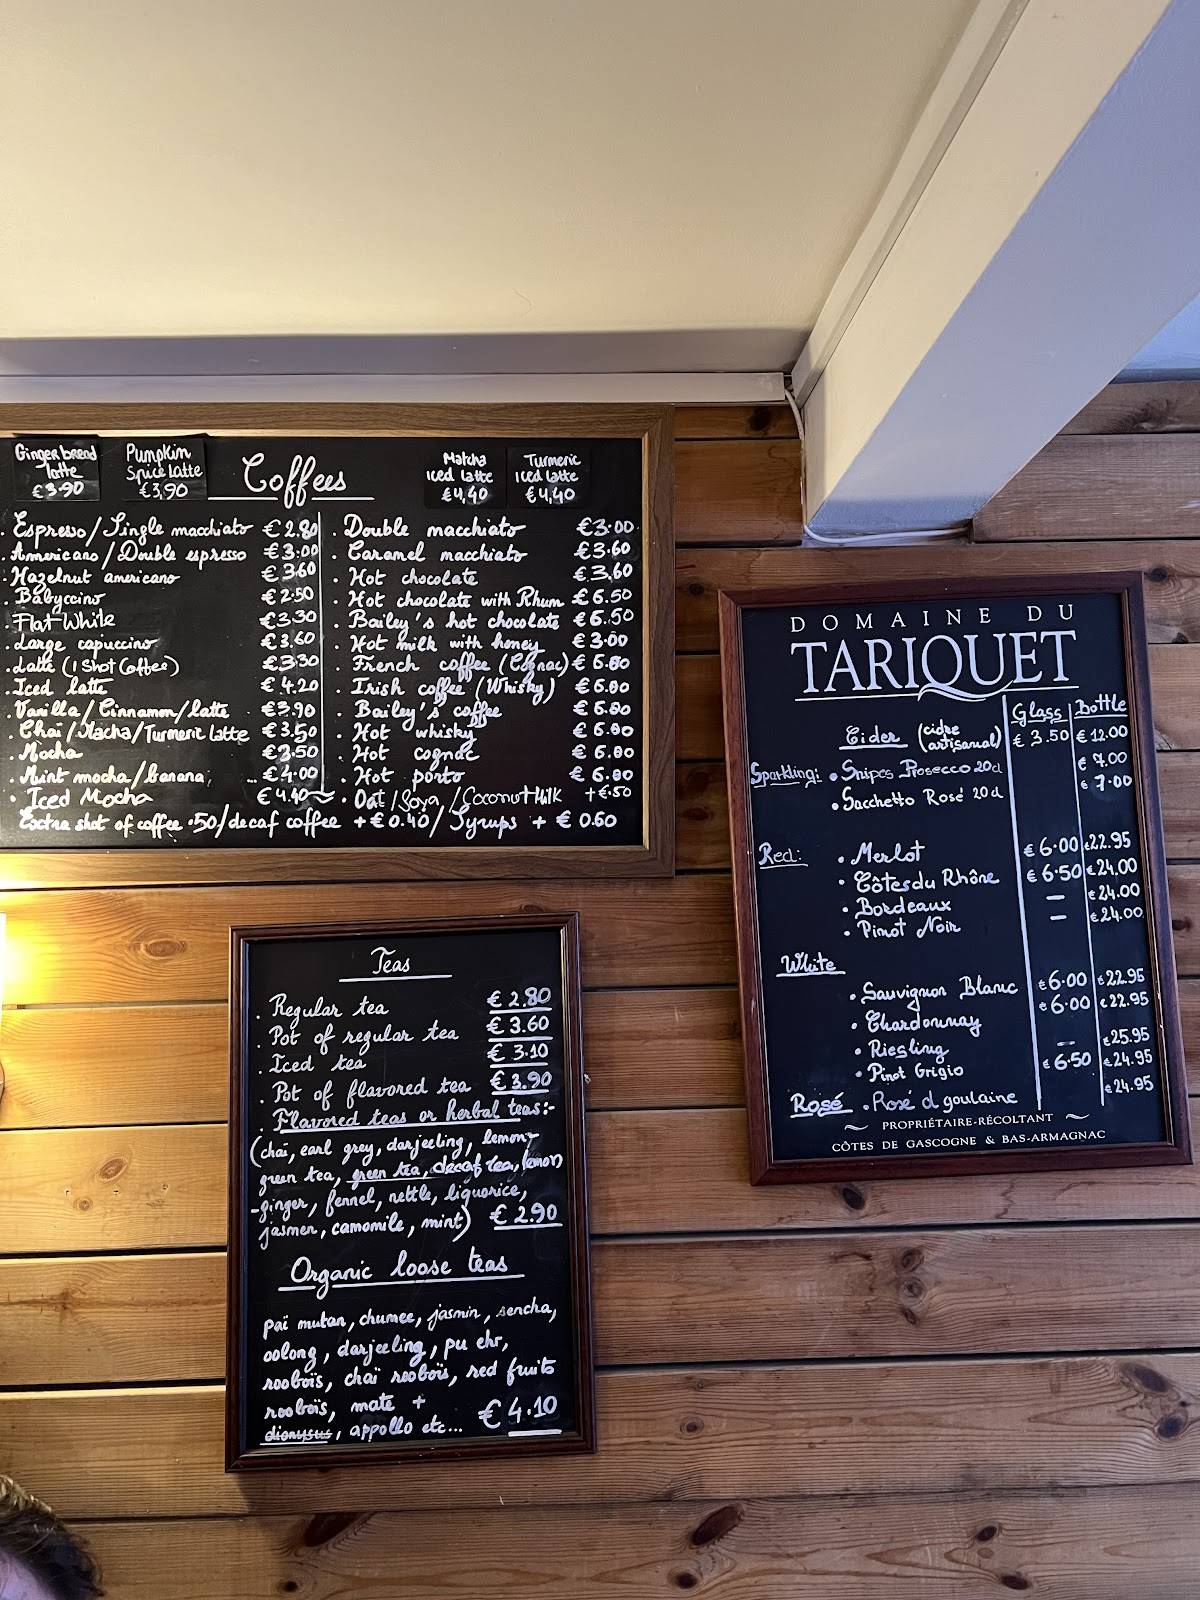 Ginger bread
latte
€3.90
Pumpkin
Spice latte
€3,90
Coffees
Matcha
iced latte
€4,40
Turmeric
iced latte
€4,40
. Espresso/Single macchiato €2.80
. Americano/Double espresso €3.00
. Hazelnut americano €3.60
. Babyccino €2.50
. Flat White €3.30
. Large capuccino €3.60
. Latte (1 Shot Coffee) €3.30
. Iced latte €4.20
. Vanilla/Cinnamon/latte €3.90
. Chai/Macha/Turmeric latte €3.50
. Mocha €3.50
. Mint mocha/banana, .. €4.00
. Iced Mocha €4.40
. Double macchiato €3.00
. Caramel macchiato €3.60
. Hot chocolate €3.60
. Hot chocolate with Rhum €6.50
. Bailey's hot chocolate €6.50
. Hot milk with honey €3.00
. French coffee (Cognac) €6.80
. Irish coffee (Whisky) €6.80
. Bailey's coffee €6.80
. Hot whisky €6.80
. Hot cognac €6.80
. Hot porto €6.80
. Oat/Soya/Coconut Milk +€.50
Extra shot of coffee .50/decaf coffee +€0.40/Syrups + €0.60
Teas
. Regular tea €2.80
. Pot of regular tea €3.60
. Iced tea €3.10
. Pot of flavored tea €3.90
. Flavored teas or herbal teas:-
(chai, earl grey, darjeeling, lemon-
green tea, green tea, decaf tea, lemon
-ginger, fennel, nettle, liquorice,
jasmen, camomile, mint) €2.90
Organic loose teas
paï mutan, chumee, jasmin, sencha,
oolong, darjeeling, pu ehr,
rooboïs, chaï rooboïs, red fruits
rooboïs, mate +
dionysus, appollo etc... €4.10
DOMAINE DU
TARIQUET
Glass Bottle
Cider (cidre artisanal) €3.50 €12.00
Sparkling: . Snipes Prosecco 20cl €7.00
. Sacchetto Rosé 20cl €7.00
Red: . Merlot €6.00 €22.95
. Côtes du Rhône €6.50 €24.00
. Bordeaux — €24.00
. Pinot Noir — €24.00
White
. Sauvignon Blanc €6.00 €22.95
. Chardonnay €6.00 €22.95
. Riesling — €25.95
. Pinot Grigio €6.50 €24.95
Rosé . Rosé d goulaine €24.95
PROPRIÉTAIRE-RÉCOLTANT
CÔTES DE GASCOGNE & BAS-ARMAGNAC